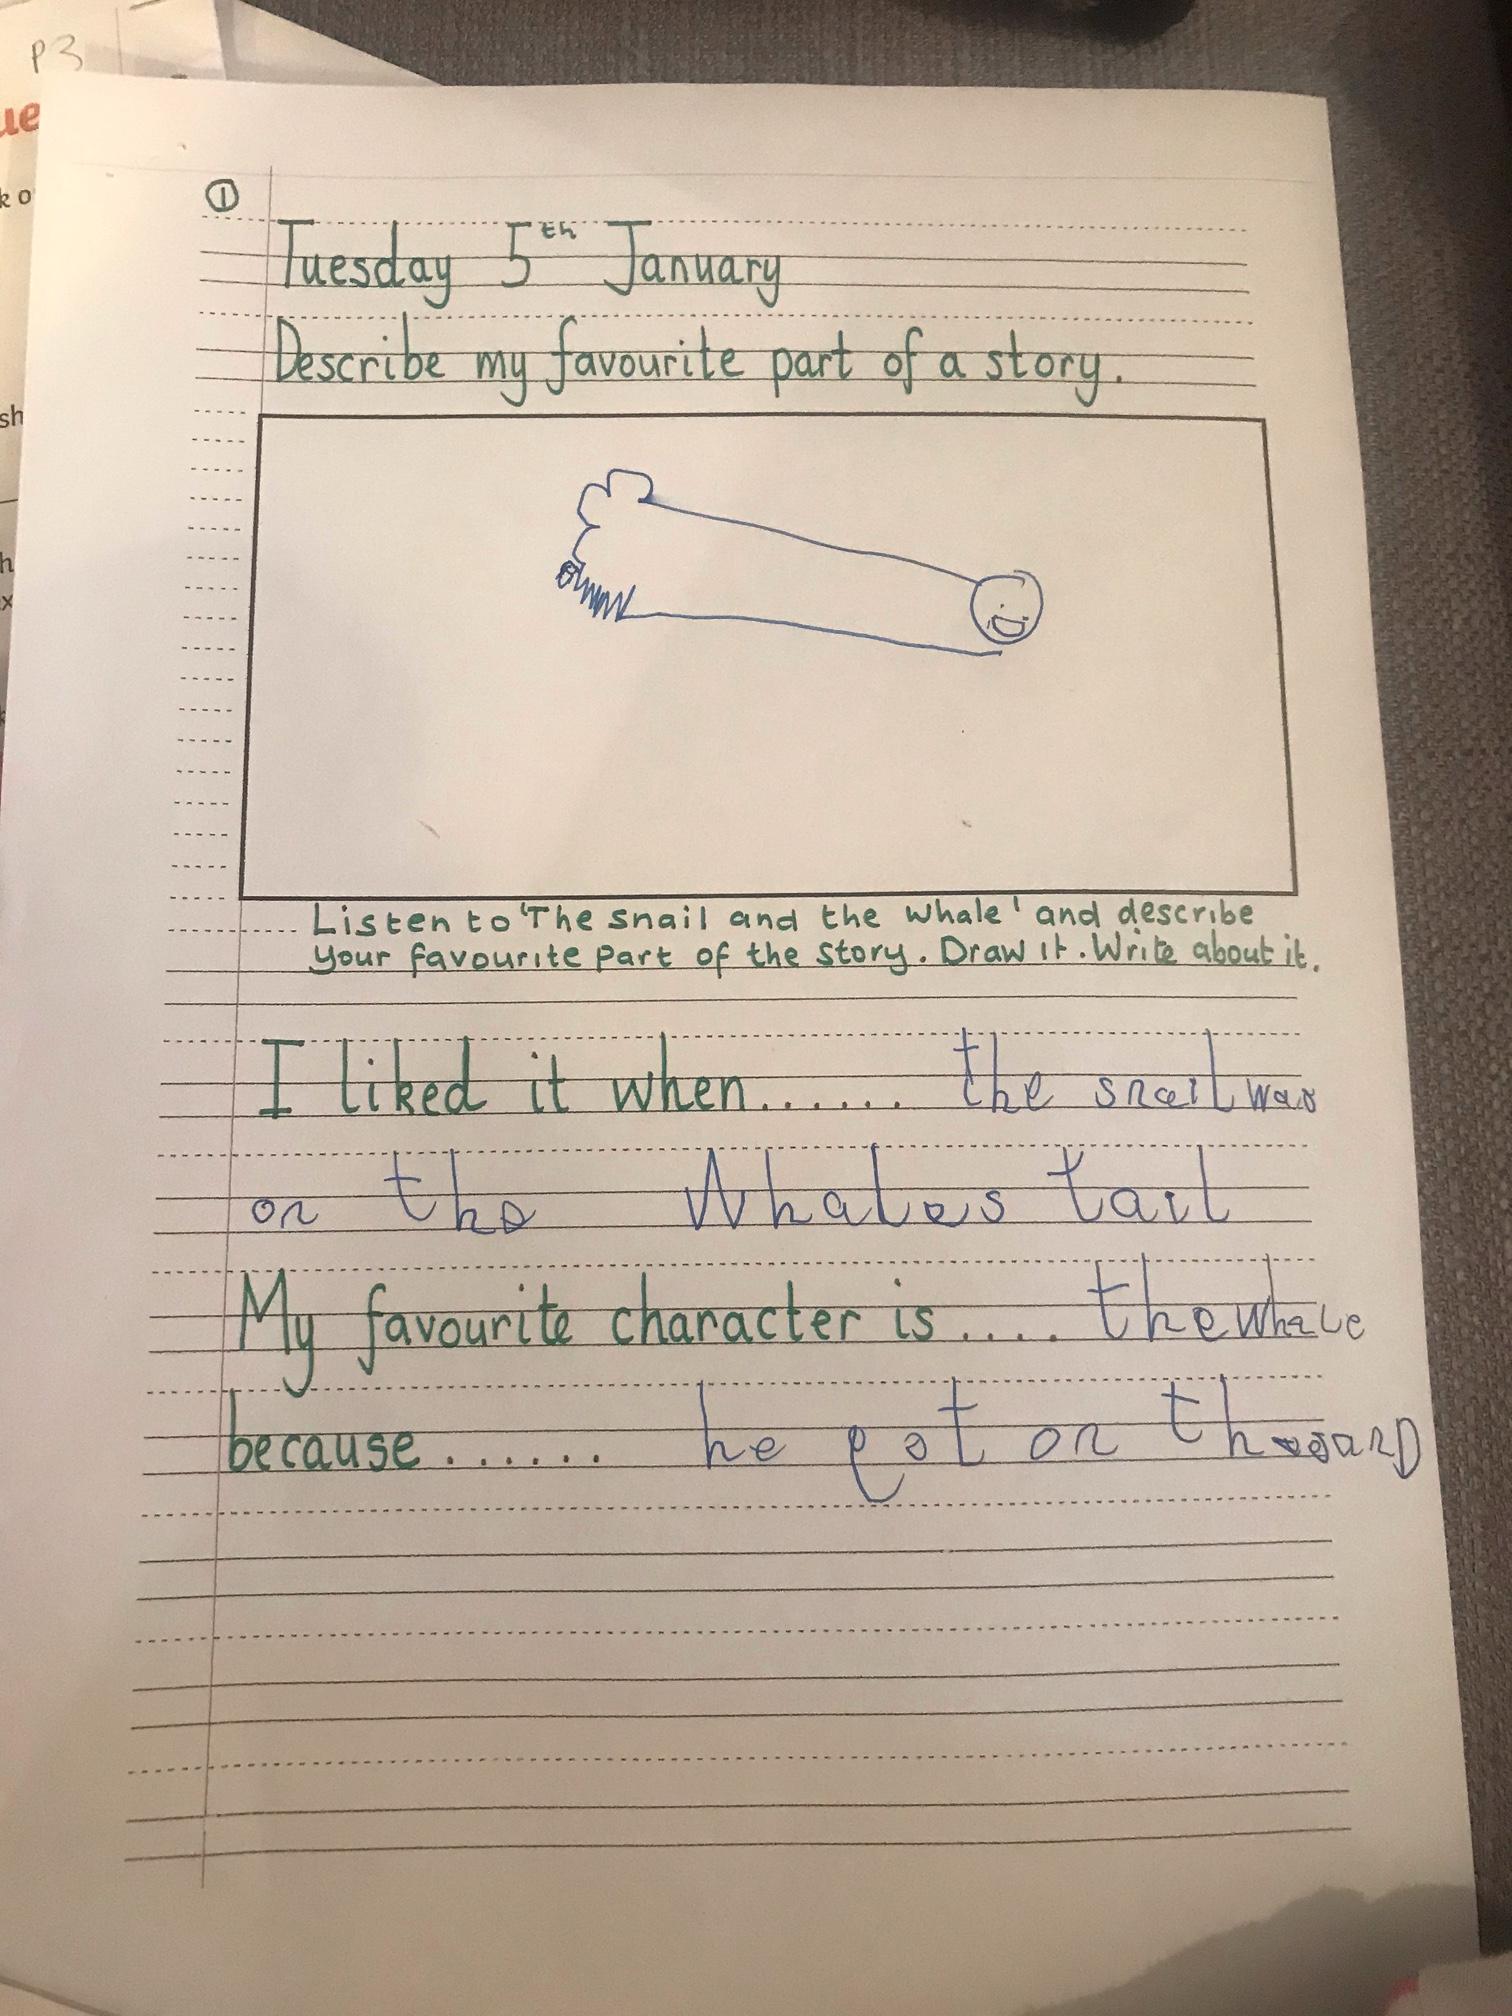 P3
ue
k o
sh
h
x
①
Tuesday 5th January
Describe my favourite part of a story.
Listen to 'The snail and the whale' and describe
your favourite part of the story. Draw it. Write about it.
I liked it when...... the snail was
on the Whales tail
My favourite character is.... the whale
because...... he got on